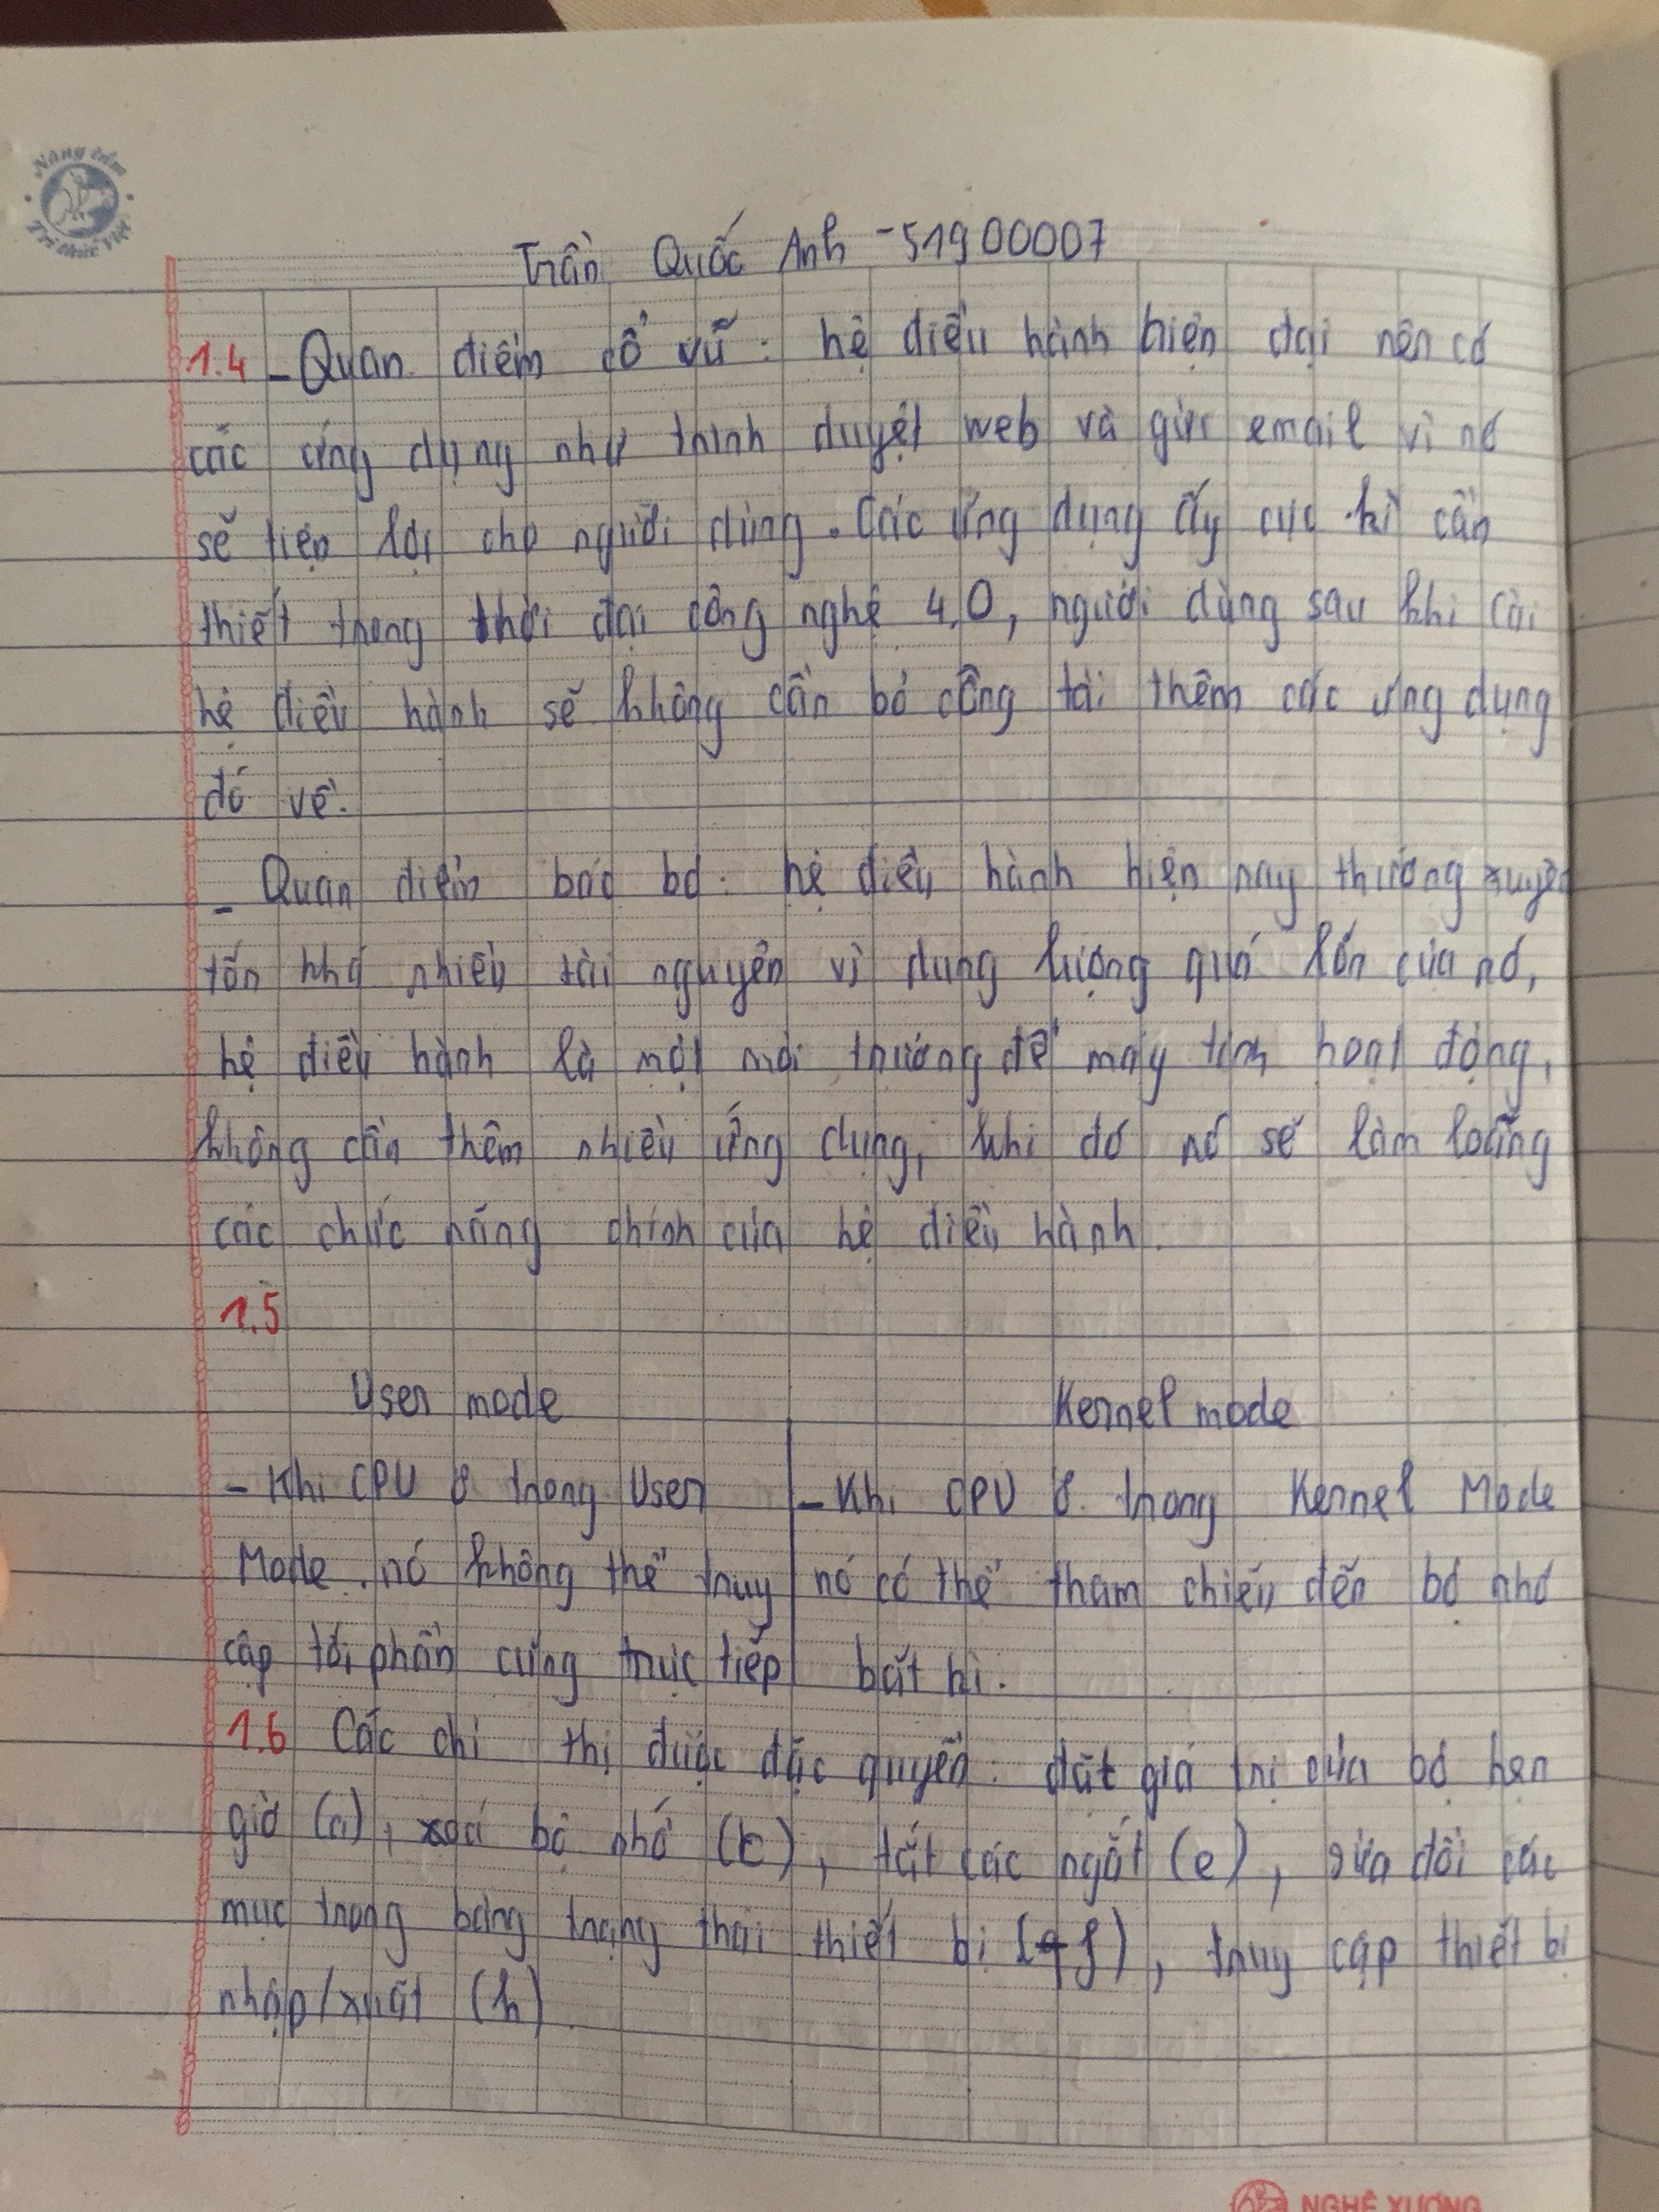 Nâng tầm
Tri thức Việt
Trần Quốc Anh - 51900007
1.4 - Quan điểm cổ vũ: hệ điều hành hiện đại nên có
các ứng dụng như trình duyệt web và gửi email vì nó
sẽ tiện lợi cho người dùng. Các ứng dụng ấy cực kì cần
thiết trong thời đại công nghệ 4.0, người dùng sau khi cài
hệ điều hành sẽ không cần bỏ công tải thêm các ứng dụng
đó về.
- Quan điểm bác bỏ: hệ điều hành hiện nay thường xuyên
tốn khá nhiều tài nguyên vì dung lượng quá lớn của nó,
hệ điều hành là một môi trường để máy tính hoạt động,
không cần thêm nhiều ứng dụng, khi đó nó sẽ làm loãng
các chức năng chính của hệ điều hành.
1.5
User mode Kernel mode
- Khi CPU ở trong User - Khi CPU ở trong Kernel Mode
Mode, nó không thể truy nó có thể tham chiếu đến bộ nhớ
cập tới phần cứng trực tiếp bất kì.
1.6 Các chỉ thị được đặc quyền: đặt giá trị của bộ hẹn
giờ (a), xoá bộ nhớ (c), tắt các ngắt (e), sửa đổi các
mục trong bảng trạng thái thiết bị (f), truy cập thiết bị
nhập/xuất (h).
NGHỆ XƯƠNG